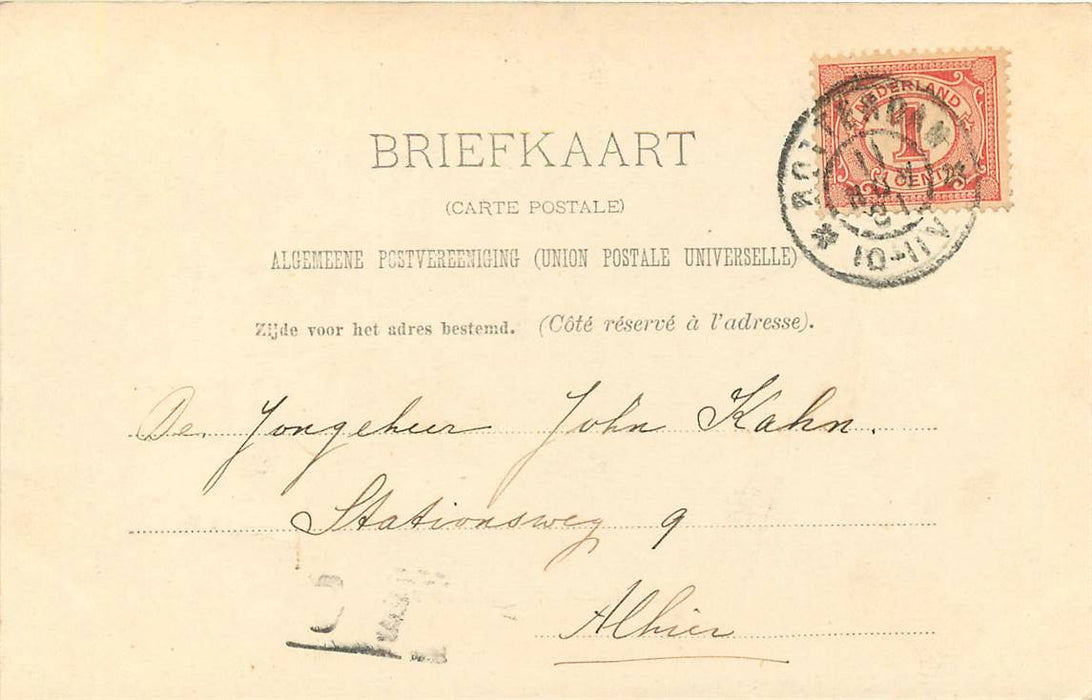 BRIEFKAART
(CARTE POSTALE)
ALGEMEENE POSTVEREENIGING (UNION POSTALE UNIVERSELLE)
Zijde voor het adres bestemd. (Côté réservé à l'adresse).
NEDERLAND
1
CENT
ROTTERDAM
11
10-11V
De Jongeheer John Kahn.
Stationsweg 9
Alhier